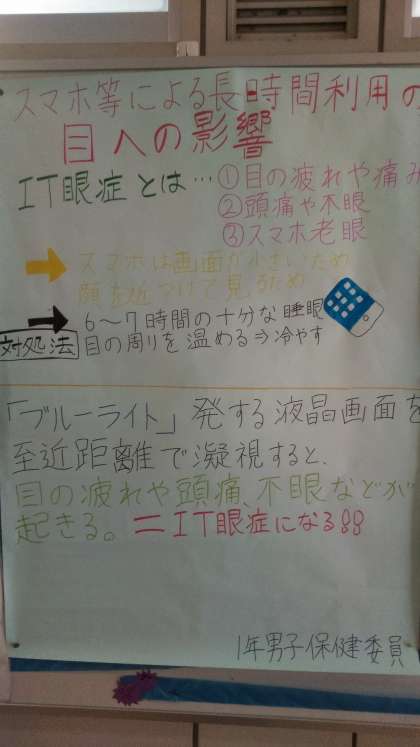 スマホ等による長時間利用の
目への影響
IT眼症とは…①目の疲れや痛み
②頭痛や不眠
③スマホ老眼
スマホは画面が小さいため
顔を近づけて見るため
6〜7時間の十分な睡眠
対処法 目の周りを温める⇒冷やす
「ブルーライト」発する液晶画面を
至近距離で凝視すると、
目の疲れや頭痛、不眠などが
起きる。=IT眼症になる!!
1年男子保健委員